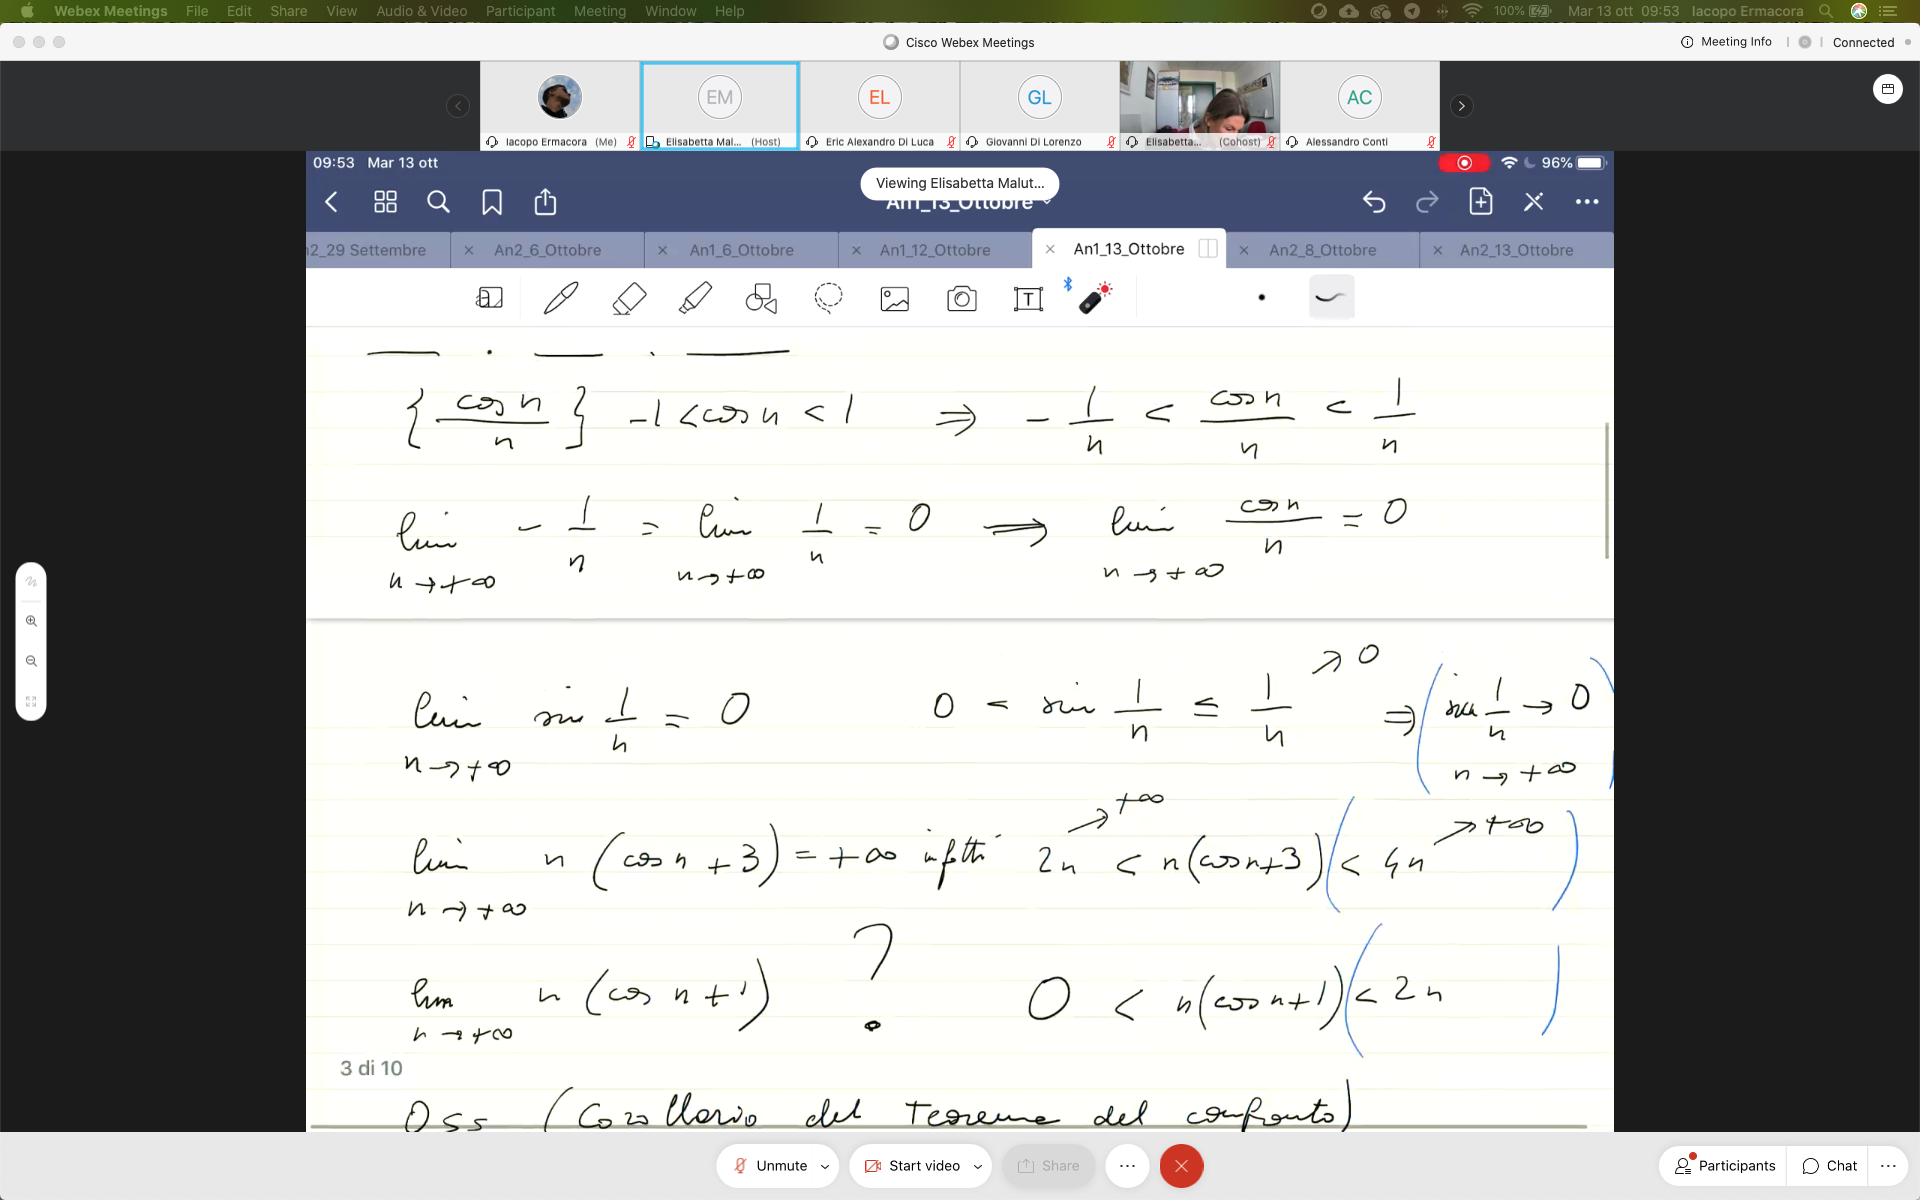 Webex Meetings File Edit Share View Audio & Video Participant Meeting Window Help 100% Mar 13 ott 09:53 Iacopo Ermacora
Cisco Webex Meetings Meeting Info Connected
EM EL GL AC
Iacopo Ermacora (Me) Elisabetta Mal... (Host) Eric Alexandro Di Luca Giovanni Di Lorenzo Elisabetta... (Cohost) Alessandro Conti
09:53 Mar 13 ott 96%
Viewing Elisabetta Malut...
An1_13_Ottobre
n2_29 Settembre An2_6_Ottobre An1_6_Ottobre An1_12_Ottobre An1_13_Ottobre An2_8_Ottobre An2_13_Ottobre
{cos n / n} -1 < cos n < 1 ⇒ - 1/n < cos n / n < 1/n
lim n→+∞ - 1/n = lim n→+∞ 1/n = 0 ⇒ lim n→+∞ cos n / n = 0
lim n→+∞ sin 1/n = 0 0 < sin 1/n ≤ 1/n → 0 ⇒ (sin 1/n → 0 n→+∞)
lim n→+∞ n (cos n + 3) = +∞ infatti 2n → +∞ < n(cos n + 3) (< 4n → +∞)
lim n→+∞ n (cos n + 1) ? 0 < n(cos n + 1) (< 2n)
3 di 10
Oss (Corollario del Teorema del confronto)
Unmute Start video Share Participants Chat